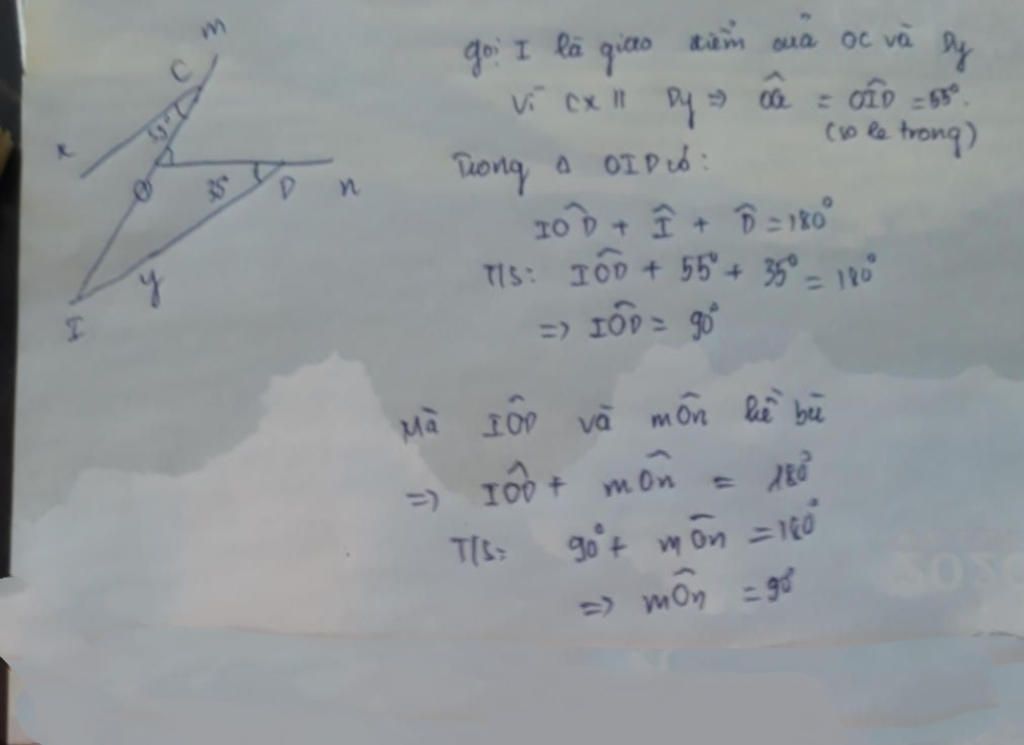 m
C
55°
x
O
35°
D
n
y
I
gọi I là giao điểm của OC và Dy
Vì Cx || Dy => = OÎD = 55°.
(so le trong)
Trong Δ OID có:
IÔD + Î + D̂ = 180°
T/S: IÔD + 55° + 35° = 180°
=> IÔD = 90°
Mà IÔD và mÔn kề bù
=> IÔD + mÔn = 180°
T/S: 90° + mÔn = 180°
=> mÔn = 90°
2020